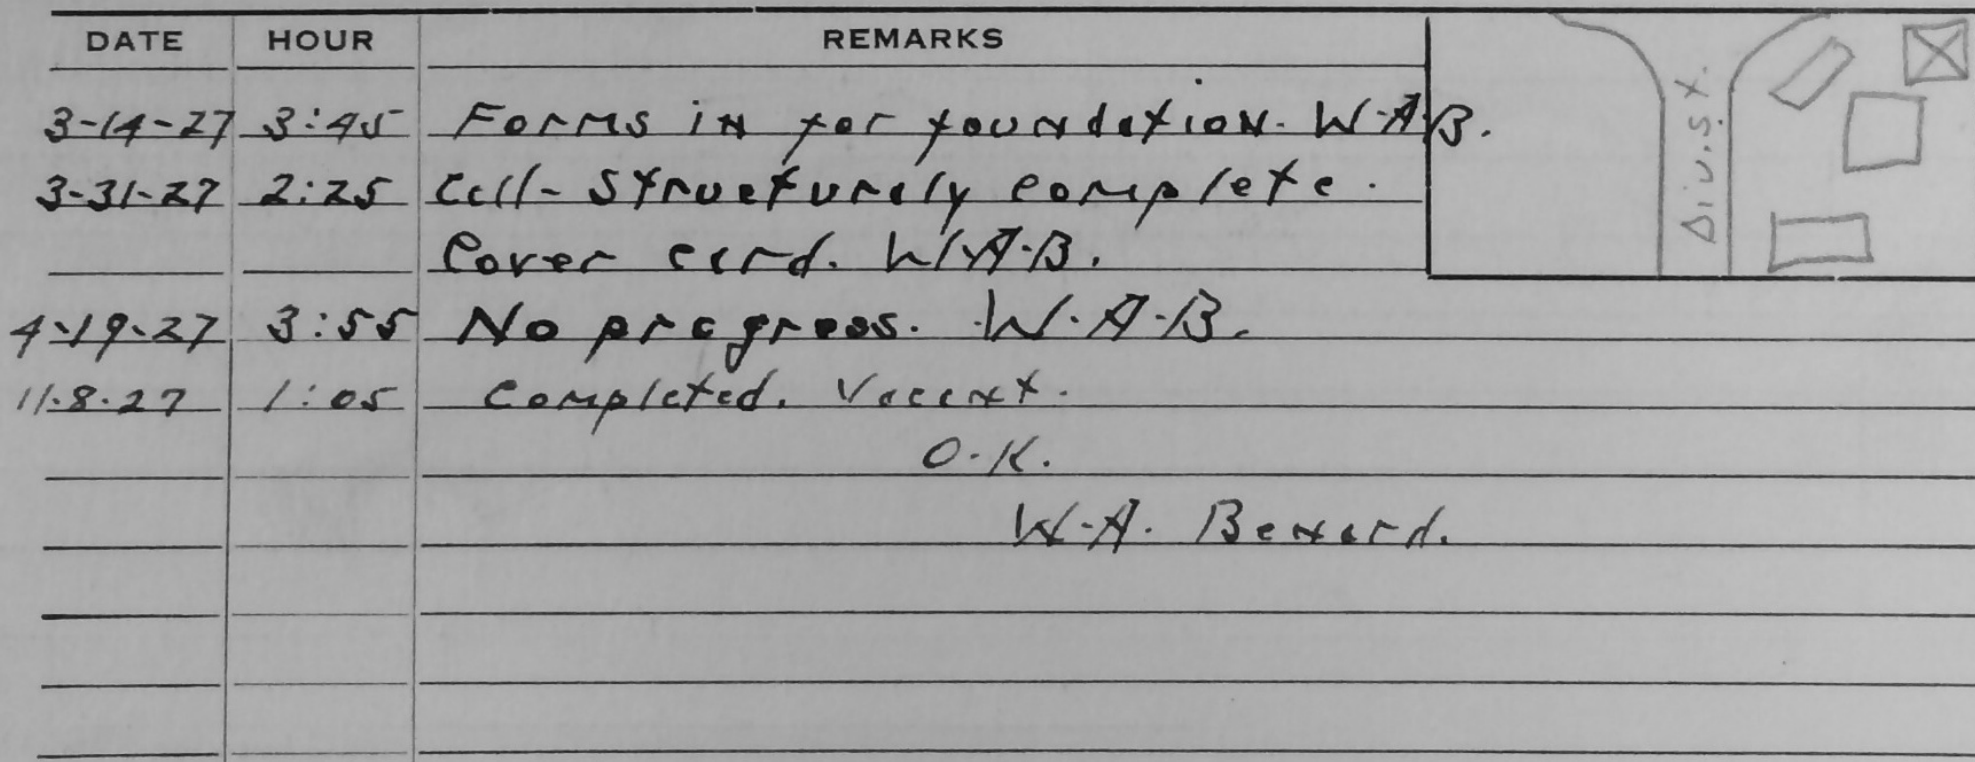 DATE HOUR REMARKS
3-14-27 3:45 Forms in for foundation. W.A.B.
3-31-27 2:25 Call- Structuraly complete.
Cover card. W.A.B.
4-19-27 3:55 No progress. W.A.B.
11.8.27 1:05 Completed. Vacant.
O.K.
W.A. Benard.
Div. St.